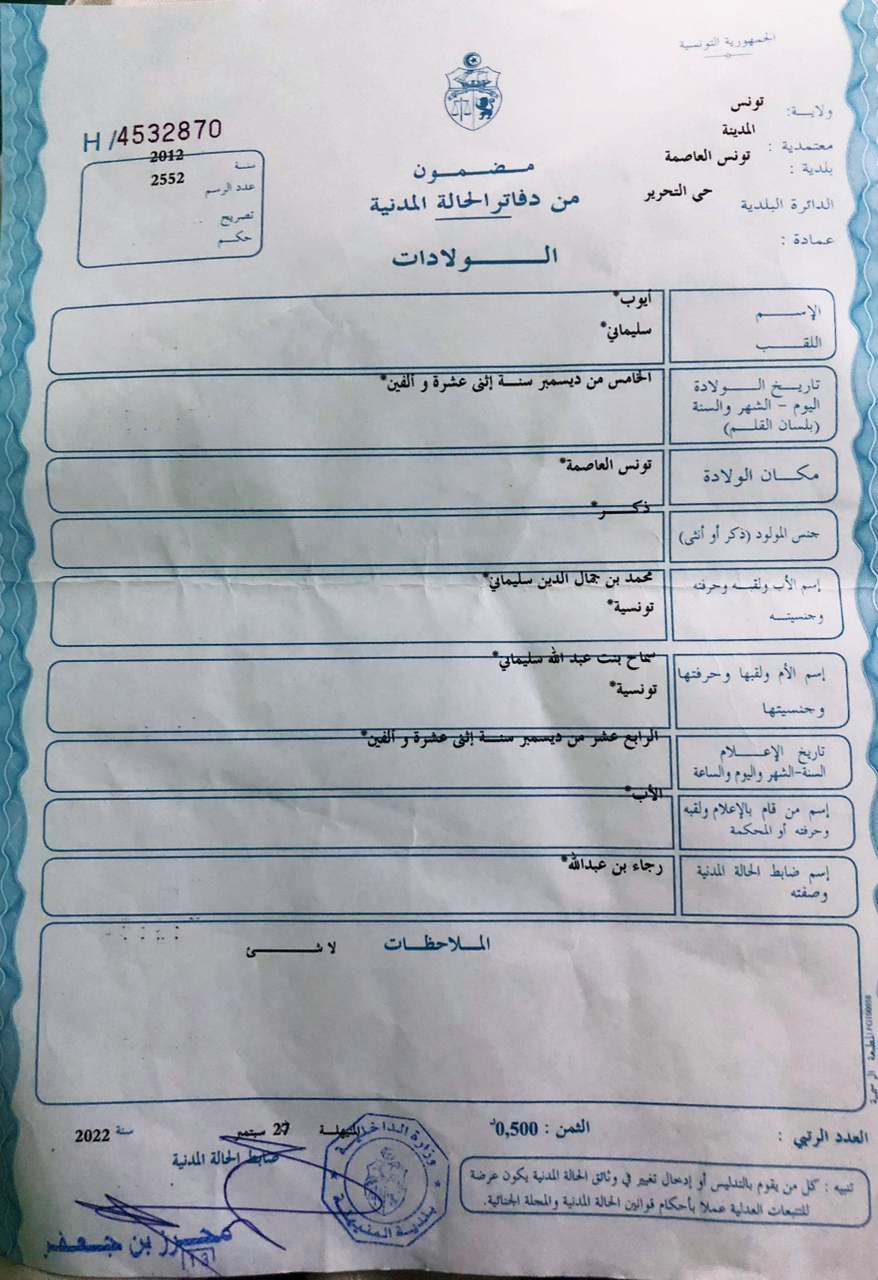 الجمهورية التونسية
ولاية: تونس
معتمدية : المدينة
بلدية : تونس العاصمة
الدائرة البلدية حي التحرير
عمادة :
H/4532870
سنة 2012
عدد الرسم 2552
تصريح
حكم
مضمون
من دفاتر الحالة المدنية
الولادات
الإسم أيوب*
اللقب سليماني*
تاريخ الولادة
اليوم - الشهر والسنة
(بلسان القلم)
الخامس من ديسمبر سنة إثنى عشرة و ألفين*
مكان الولادة تونس العاصمة*
جنس المولود (ذكر أو أنثى) ذكر*
إسم الأب ولقبه وحرفته
وجنسيته
محمد بن جمال الدين سليماني*
تونسية*
إسم الأم ولقبها وحرفتها
وجنسيتها
سماح بنت عبد الله سليماني*
تونسية*
تاريخ الإعلام
السنة-الشهر واليوم والساعة
الرابع عشر من ديسمبر سنة إثنى عشرة و ألفين*
إسم من قام بالإعلام ولقبه
وحرفته أو المحكمة
الأب*
إسم ضابط الحالة المدنية
وصفته
رجاء بن عبدالله*
الملاحظات
لا شئ
العدد الرتبي :
الثمن : 0,500د
المنيهلة 27 سبتمبر سنة 2022
ضابط الحالة المدنية
تنبيه : كل من يقوم بالتدليس أو إدخال تغيير في وثائق الحالة المدنية يكون عرضة
للتتبعات العدلية عملا بأحكام قوانين الحالة المدنية والمجلة الجنائية.
وزارة الداخلية
بلدية المنيهلة
محرز بن جعفر